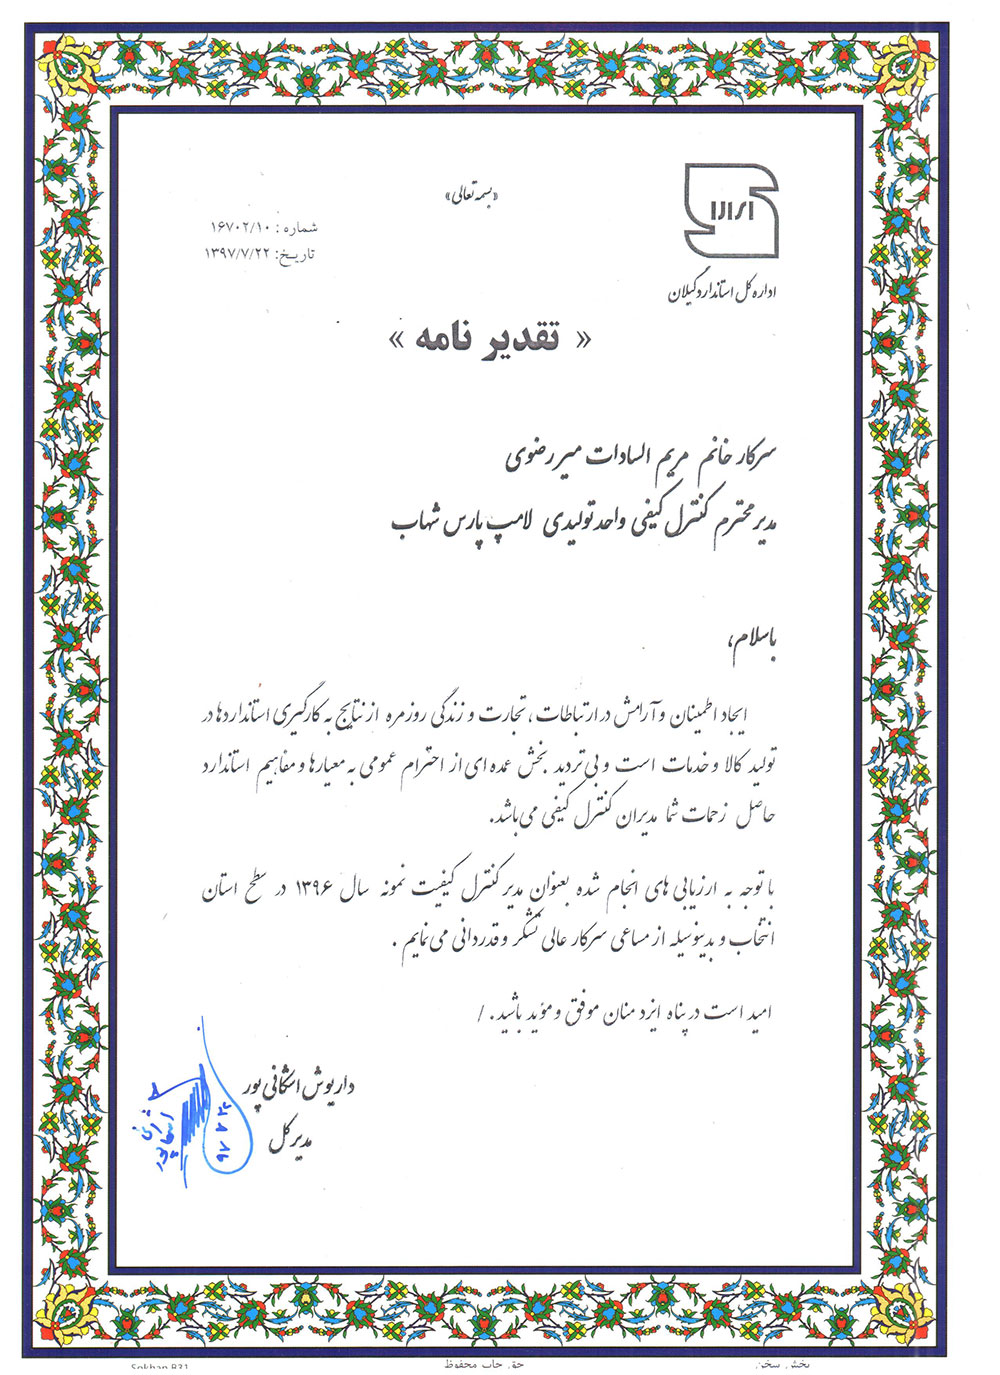 «بسمه تعالی»
شماره : ۱۶۷۰۲/۱۰
تاریخ: ۱۳۹۷/۷/۲۲
اداره کل استاندارد گیلان
« تقدیر نامه »
سرکار خانم مریم السادات میررضوی
مدیر محترم کنترل کیفی واحد تولیدی لامپ پارس شهاب
باسلام،
ایجاد اطمینان و آرامش در ارتباطات ، تجارت و زندگی روزمره از نتایج به کارگیری استانداردها در
تولید کالا و خدمات است و بی تردید بخش عمده ای از احترام عمومی به معیارها و مفاهیم استاندارد
حاصل زحمات شما مدیران کنترل کیفی می باشد.
با توجه به ارزیابی های انجام شده بعنوان مدیر کنترل کیفیت نمونه سال ۱۳۹۶ در سطح استان
انتخاب و بدینوسیله از مساعی سرکار عالی تشکر و قدردانی می نمایم .
امید است در پناه ایزد منان موفق و مؤید باشید. /
داریوش اشکانی پور
مدیر کل
۹۷ ۷ ۲۲
Sokhan B31
حق چاپ محفوظ
پخش سخن